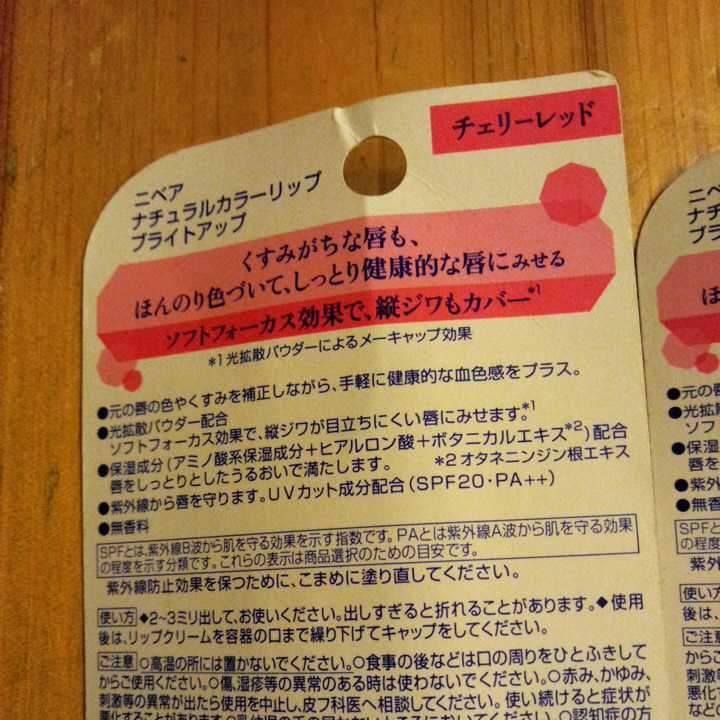 チェリーレッド
ニベア
ナチュラルカラーリップ
ブライトアップ
くすみがちな唇も、
ほんのり色づいて、しっとり健康的な唇にみせる
ソフトフォーカス効果で、縦ジワもカバー*1
*1 光拡散パウダーによるメーキャップ効果
●元の唇の色やくすみを補正しながら、手軽に健康的な血色感をプラス。
●光拡散パウダー配合
ソフトフォーカス効果で、縦ジワが目立ちにくい唇にみせます。*1
●保湿成分(アミノ酸系保湿成分+ヒアルロン酸+ボタニカルエキス*2)配合
唇をしっとりとしたうるおいで満たします。 *2 オタネニンジン根エキス
●紫外線から唇を守ります。UVカット成分配合(SPF20・PA++)
●無香料
SPFとは、紫外線B波から肌を守る効果を示す指数です。PAとは紫外線A波から肌を守る効果
の程度を示す分類です。これらの表示は商品選択のための目安です。
紫外線防止効果を保つために、こまめに塗り直してください。
使い方 ◆2~3ミリ出して、お使いください。出しすぎると折れることがあります。◆使用
後は、リップクリームを容器の口まで繰り下げてキャップをしてください。
ご注意 ○高温の所には置かないでください。○食事の後などは口の周りをひとふきして
からご使用ください。○傷、湿疹等の異常のある時は使わないでください。○赤み、かゆみ、
刺激等の異常が出たら使用を中止し、皮フ科医へ相談してください。使い続けると症状が
悪化することがあります。
○認知症の方
ニベ
ナチ
ブラ
ほ
●元の
●光拡
ソフ
●保湿
唇を
●紫外
●無香
SPFと
の程度
紫外
使い方
後は、
ご注意
からご
刺激等
悪化
などの